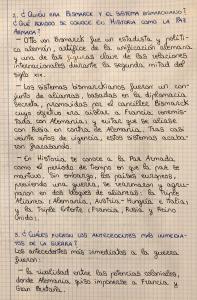 2. ¿Quién era Bismarck y el sistema bismarckiano?
¿Qué periodo se conoce en Historia como la Paz
Armada?
- Otto von Bismarck fue un estadista y políti-
co alemán, artífice de la unificación alemana
y una de las figuras clave de las relaciones
internacionales durante la segunda mitad del
siglo XIX.
- Los sistemas bismarckianos fueron un con-
junto de alianzas, basadas en la diplomacia
secreta, promovidas por el canciller Bismarck
cuyo objetivo era aislar a Francia, enemis-
tada con Alemania; y evitar que se aliase
con Rusia en contra de Alemania. Tras casi
veinte años de vigencia, estos sistemas acaba-
ron fracasando.
- En Historia se conoce a la Paz Armada
como el periodo de tiempo en que la paz se
mantuvo. Sin embargo, los países europeos,
preveiendo una guerra, se rearmaron y agru-
maron en dos bloques de alianzas: la Triple
Alianza (Alemania, Austria-Hungría e Italia)
y la Triple Entente (Francia, Rusia y Reino
Unido).
3. ¿Cuáles fueron los antecedentes más inmedia-
tos de la guerra?
Los antecedentes más inmediatos a la guerra
fueron:
- La rivalidad entre las potencias coloniales,
donde Alemania quiso imponerse a Francia y
Gran Bretaña.